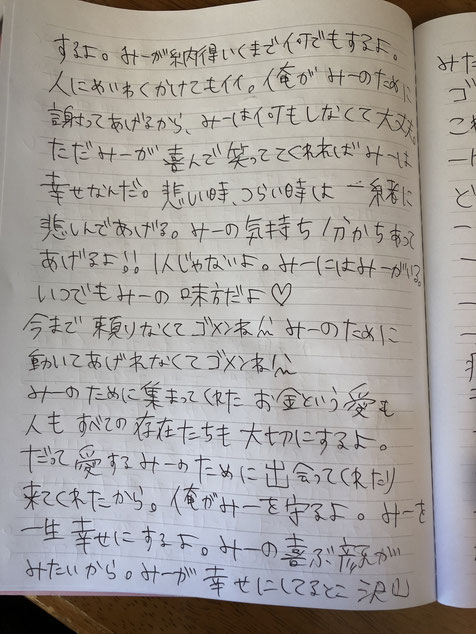 するよ。みーが納得いくまで何でもするよ。
人にめいわくかけてもイイ。俺がみーのために
謝ってあげるから、みーは何もしなくて大丈夫。
ただみーが喜んで笑っててくれればみーは
幸せなんだ。悲しい時、つらい時は一緒に
悲しんであげる。みーの気持ち分かちあって
あげるよ!! 1人じゃないよ。みーにはみーがいる。
いつでもみーの味方だよ♡
今まで頼りなくてゴメンね みーのために
動いてあげれなくてゴメンね
みーのために集まってくれたお金という愛も
人もすべての存在たちも大切にするよ。
だって愛するみーのために出会ってくれたり
来てくれたから。俺がみーを守るよ。みーを
一生幸せにするよ。みーの喜ぶ顔が
みたいから。みーが幸せにしてるとこ沢山
みた
ゴ
こ
ど